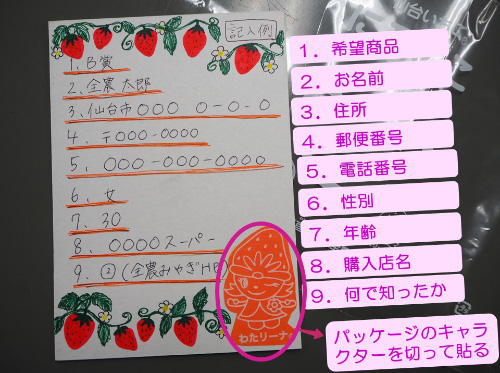 記入例
1. B賞
2. 全農 太郎
3. 仙台市〇〇〇 〇-〇-〇
4. 〒〇〇〇-〇〇〇〇
5. 〇〇〇-〇〇〇-〇〇〇〇
6. 女
7. 30
8. 〇〇〇〇スーパー
9. ②(全農みやぎHP)
わたリーナ
1. 希望商品
2. お名前
3. 住所
4. 郵便番号
5. 電話番号
6. 性別
7. 年齢
8. 購入店名
9. 何で知ったか
パッケージのキャラ
クターを切って貼る